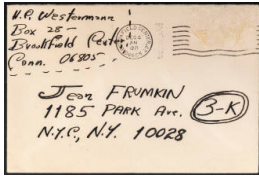 H.C. Westermann
Box 28 —
Brookfield Center
Conn. 06805
Jean FRUMKIN
1185 PARK Ave. 3-K
N.Y.C., N.Y. 10028